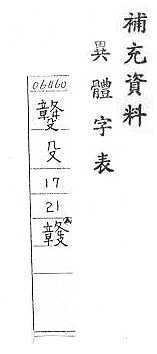 補充資料
異體字表
06460
殳
17
21